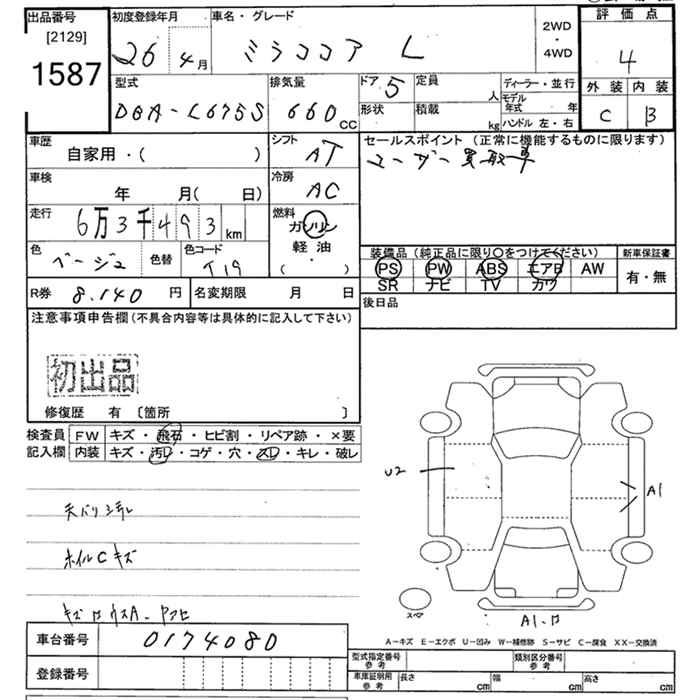 出品番号
[2129]
1587
初度登録年月
26 4月
車名・グレード
ミラココア L
2WD
・
4WD
評価点
4
外装 内装
C B
型式
DBA-L675S
排気量
660 CC
ドア 5
形状
定員 人
積載 kg
ディーラー・並行
モデル年式 年
ハンドル 左・右
車歴
自家用・( )
シフト
AT
セールスポイント (正常に機能するものに限ります)
ユーザー買取車
車検
年 月( 日)
冷房
AC
走行
6万3千493 km
燃料
ガソリン
軽油
・
( )
色
ベージュ
色替
色コード
T19
装備品 (純正品に限り○をつけてください)
PS PW ABS エアB AW
SR ナビ TV カワ
新車保証書
有・無
R券 8.140 円
名変期限 月 日
後日品
注意事項申告欄 (不具合内容等は具体的に記入して下さい)
初出品
修復歴 有 〔箇所 〕
検査員
記入欄
FW キズ・飛石・ヒビ割・リペア跡・×要
内装 キズ・汚レ・コゲ・穴・スレ・キレ・破レ
天バリシミ
ホイルCキズ
U2
A1
スペア
A1
A-キズ E-エクボ U-凹み W-補修跡 S-サビ C-腐食 XX-交換済
車台番号
0174080
登録番号
型式指定番号
参考
類別区分番号
参考
車庫証明用
参考
長さ cm
幅 cm
高さ cm